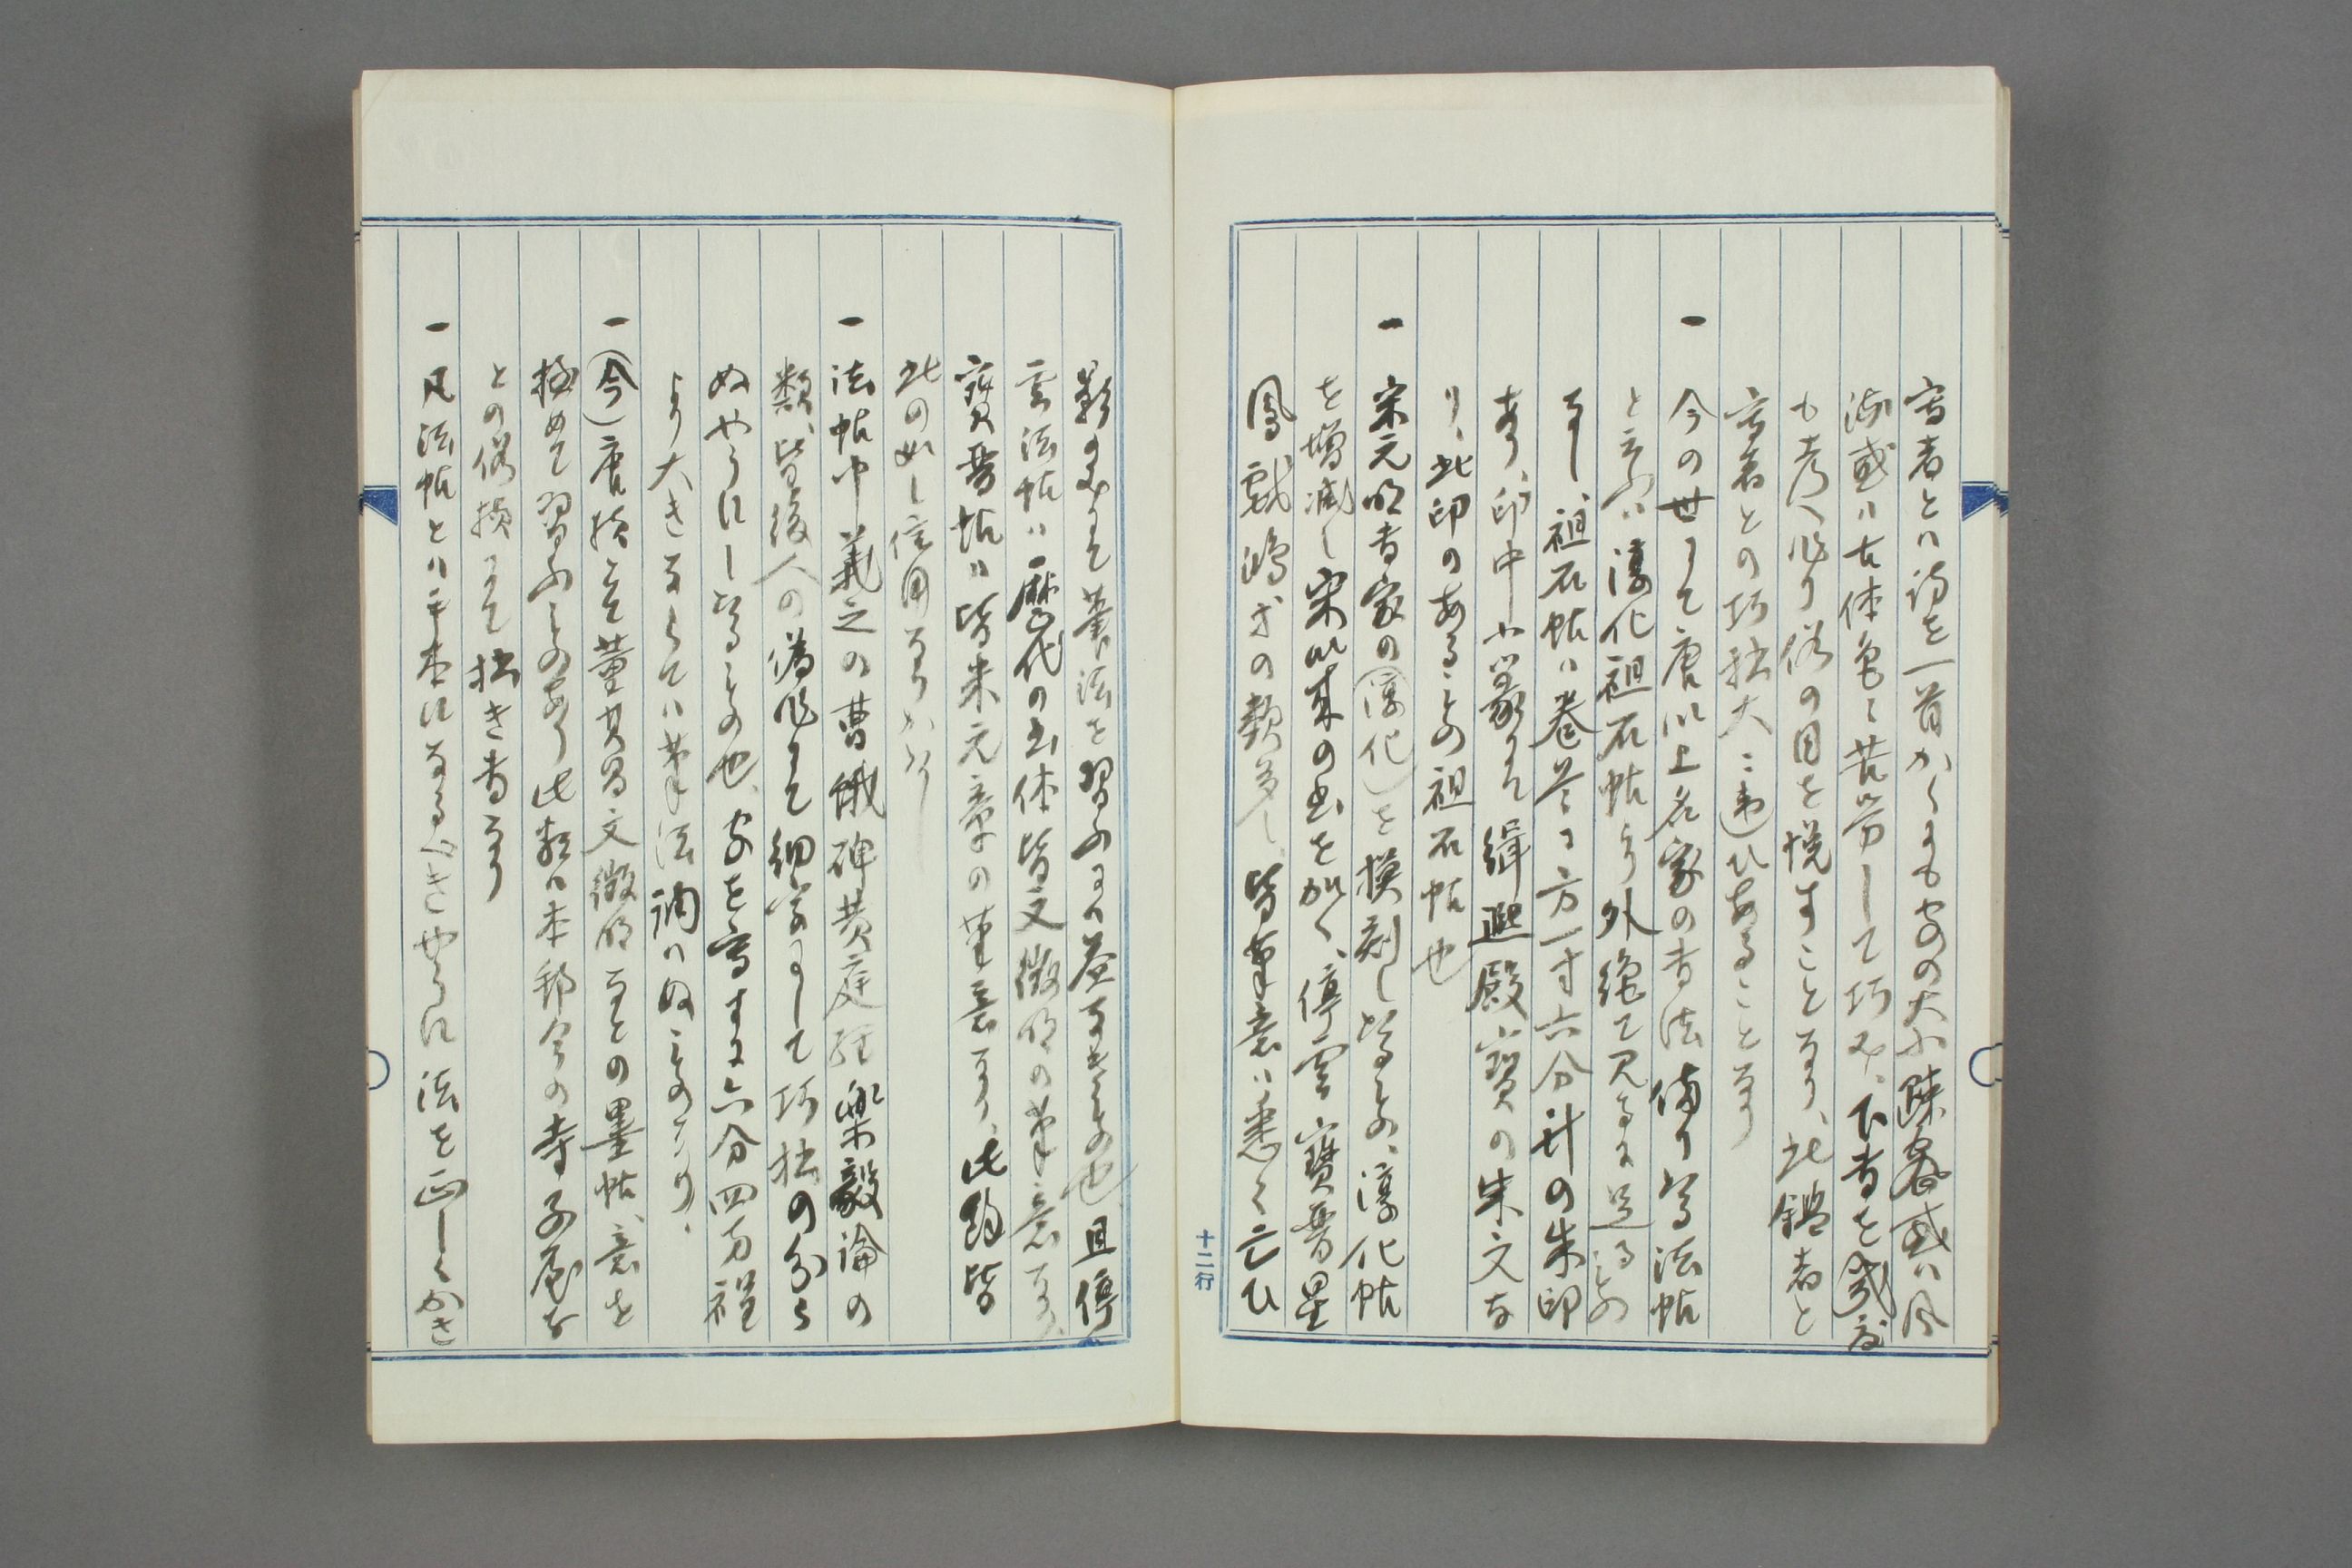 書者とハ詩を一首かくにも字の大小踈密或ハ風
流或ハ古体色々苦労して巧み、下書を幾度
も考へ作り俗の目を悦すことなり、此鑑者と
書者との巧拙大ニ違ひあることなり
一 今の世にて唐以上名家の書法備りたる法帖
と云ふハ淳化祖石帖より外絶て見るに足るもの
なし、祖石帖ハ巻首に方一寸六分計の朱印
あり、印中小篆にて緝熙殿寳の朱文な
り、此印のあるもの祖石帖也
一 宋元明書家の淳化を摸刻したるもの、淳化帖
を増減し宋以来の書を加へ、停雲寳晋星
鳳戯鴻才の類多し、皆筆意ハ悉く亡ひ
類のみにて筆法を習ふには益なきもの也、且停
雲法帖ハ歴代の書体皆文徴明の筆意なり、
寳晋帖ハ皆朱元章の筆意なり、此類皆
此の如し信用なりがたし
一 法帖中羲之の曹娥碑黄庭経樂毅論の
類、皆後人の偽作にて細字にして巧拙の分ら
ぬやうにしたるもの也、字を書するに六分四方程
より大きならでハ筆法調ハぬものなり、
一 今唐様とて董其昌文徴明などの墨帖、意を
極めて習ふものあり此類ハ本邦今の寺子屋な
との俗様にて拙き書なり
一 凡法帖とハ手本になるべきやうに法を正しくかき
十二行